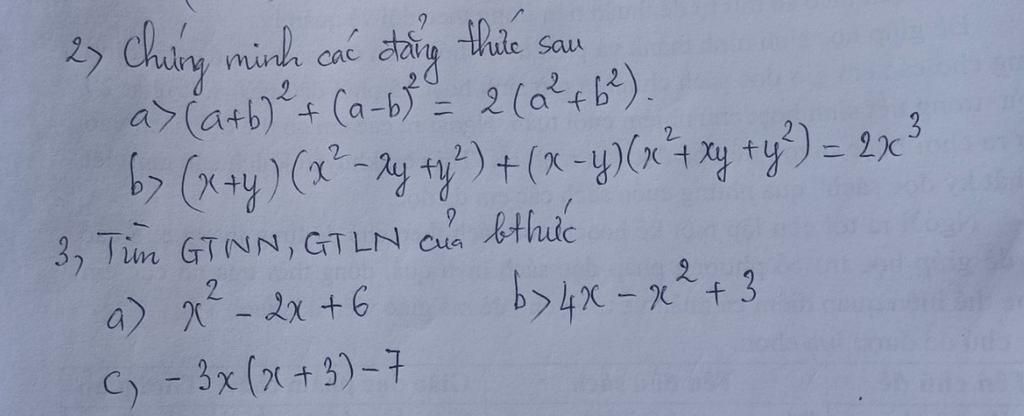 2) Chứng minh các đẳng thức sau
a) (a+b)² + (a-b)² = 2(a²+b²).
b) (x+y)(x² - xy + y²) + (x-y)(x² + xy + y²) = 2x³
3, Tìm GTNN, GTLN của bthức
a) x² - 2x + 6 b) 4x - x² + 3
c, - 3x(x+3) - 7